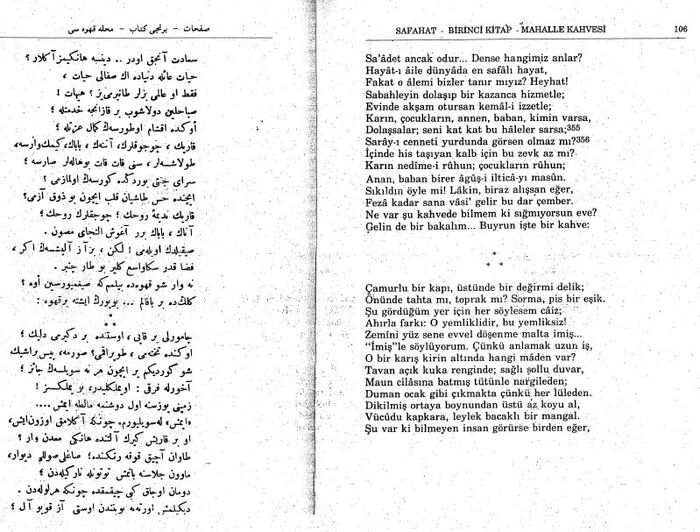 صفحات – برنجی کتاب – محله قهوه سی
سعادت آنجق اودر .. دینسه هانکیمز آکلار ؟
حیات عائله دنیاده اك صفالی حیات ،
فقط او عالمی بزلر طانیرمی یز ؟ هیهات !
صباحلین دولاشوب بر قازانجه خدمتله ؛
اوکده اقشام اوطورسه ك کمال عزتله ؛
قاریك ، چوجوقلرك، آننه ك ، باباك، کیمك وارسه،
طولاشسه لر ، سنی قات قات بو هاله لر صارسه ؛
سرای جنتی یوردکده کورسه ك اولمازمی ؟
ایچنده حس طاشیان قلب ایچون بو ذوق آزمی ؟
قاریك ندیمۀ روحك ؛ چوجقلرك روحك ؛
آناك ، باباك برر آغوش التجای مصون .
صیقیلدك اویله می ! لکن ، براز آلیشسه ك اکر ،
فضا قدر سکا واسع کلیر بو طار چنبر .
نه وار شو قهوه ده بیلمم که صیغمیورسین اوه ؟
کلك ده بر باقالم ... بویورك ایشته بر قهوه :
* *
چامورلی بر قاپی ، اوستنده بر دکیرمی دلیك ؛
اوکنده تخته می ، طوپراقمی؟ صورمه ، پیس براشیك
شو کوردیکم یر ایچون هر نه سویلسه ك جائز ؛
آخورله فرقی : او یملکلیدر ، بو یملکسز !
زمینی یوز سنه اول دوشنمه مالطه ایمش ..
«ایمش» له سویلیورم. چونکه آکلامق اوزون ایش،
او بر قاریش کیرك آلتنده هانکی معدن وار ؟
طاوان آچیق قوقه رنکنده؛ صاغلی صوللی دیوار،
ماوون جلاسنه باتمش توتونله نارکیله دن ؛
دومان اوجاق کبی چیقمقده چونکه هر لوله دن .
دیکیلمش اورته یه بوینندن اوستی آز قویو آل ؛
SAFAHAT - BİRİNCİ KİTAP - MAHALLE KAHVESİ 106
Sa'âdet ancak odur... Dense hangimiz anlar?
Hayât-ı âile dünyâda en safâlı hayat,
Fakat o âlemi bizler tanır mıyız? Heyhat!
Sabahleyin dolaşıp bir kazanca hizmetle;
Evinde akşam otursan kemâl-i izzetle;
Karın, çocukların, annen, baban, kimin varsa,
Dolaşsalar; seni kat kat bu hâleler sarsa;355
Sarây-ı cenneti yurdunda görsen olmaz mı?356
İçinde his taşıyan kalb için bu zevk az mı?
Karın nedîme-i rûhun; çocukların rûhun;
Anan, baban birer âgûş-i ilticâ-yı masûn.
Sıkıldın öyle mi! Lâkin, biraz alışsan eğer,
Fezâ kadar sana vâsi' gelir bu dar çember.
Ne var şu kahvede bilmem ki sığmıyorsun eve?
Gelin de bir bakalım... Buyrun işte bir kahve:
*
* *
Çamurlu bir kapı, üstünde bir değirmi delik;
Önünde tahta mı, toprak mı? Sorma, pis bir eşik.
Şu gördüğüm yer için her söylesem câiz;
Ahırla farkı: O yemliklidir, bu yemliksiz!
Zemîni yüz sene evvel döşenme malta imiş...
"İmiş"le söylüyorum. Çünkü anlamak uzun iş,
O bir karış kirin altında hangi mâden var?
Tavan açık kuka renginde; sağlı sollu duvar,
Maun cilâsına batmış tütünle nargileden;
Duman ocak gibi çıkmakta çünkü her lüleden.
Dikilmiş ortaya boynundan üstü az koyu al,
Vücûdu kapkara, leylek bacaklı bir mangal.
Şu var ki bilmeyen insan görürse birden eğer,